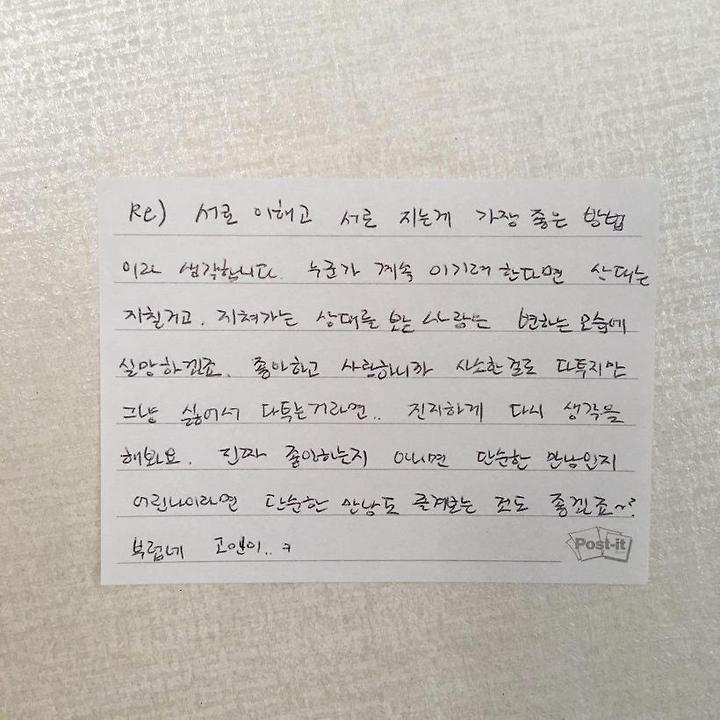 Re) 서로 이해고 서로 지는게 가장 좋은 방법
이라 생각합니다. 누군가 계속 이기려 한다면 상대는
지칠거고, 지쳐가는 상대를 보는 사람은 변하는 모습에
실망하겠죠. 좋아하고 사랑하니까 사소한걸로 다투지만
그냥 싫어서 다투는거라면.. 진지하게 다시 생각을
해봐요. 진짜 좋아하는지 아니면 단순한 만남인지
어린나이라면 단순한 만남도 즐겨보는 것도 좋겠죠~?
부럽네 고앤이.. ㅋ
Post-it